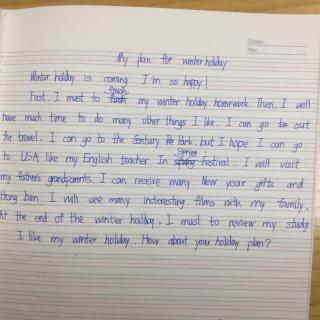 Date:
No.:
My plan for winter holiday
Winter holiday is coming. I'm so happy!
First. I must to finish my winter holiday homework. Then, I will
have much time to do many other things I like. I can go to out
for travel. I can go to the Century Park, but I hope I can go
to USA like my English teacher. In Spring festival. I will visit
my father's grandparents. I can receive many New year gifts and
Hong bao. I will see many insteresting films with my family.
At the end of the winter holiday, I must to review my study
I like my winter holiday. How about your holiday plan?